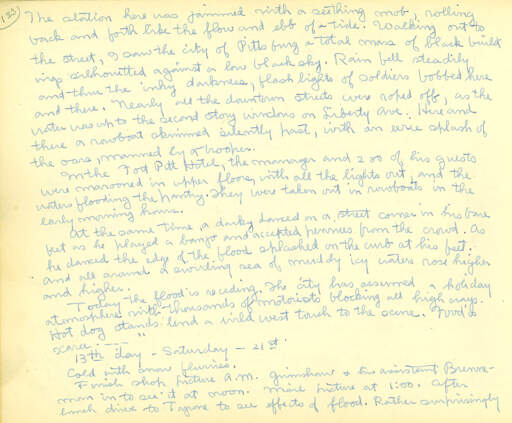 133
The station here was jammed with a seething mob, rolling
back and forth like the flow and ebb of a tide. Walking out to
the street, I saw the city of Pittsburg a total mass of black build
ings silhouetted against a low black sky. Rain fell steadily
and thru the inky darkness, flash lights of soldiers bobbed here
and there. Nearly all the downtown streets were roped off, as the
water was up to the second story windows on Liberty Ave. Here and
there a rowboat skimmed silently past, with an eerie splash of
the oars, manned by a trooper.
In the Fort Pitt Hotel, the manager and 200 of his guests
were marooned in upper floors, with all the lights out, and the
waters flooding the pantry. They were taken out in rowboats in the
early morning hours.
At the same time a darky danced on a street corner in his bare
feet as he played a banjo and accepted pennies from the crowd. As
he danced the edge of the flood splashed on the curb at his feet.
and all around a swirling sea of muddy icy waters rose higher
and higher.
Today the flood is receding. The city has assumed a holiday
atmosphere with thousands of motorists blocking all high ways.
Hot dog stands lend a wild west touch to the scene. Food is
scarce. ---- "
13th day - Saturday - 21st.
Cold with snow flurries.
Finish shop picture A.M. Grimshaw & his assistant
man in to see it at noon. Mine picture at 1:00. After
lunch drive to to see effects of flood. Rather surprisingly